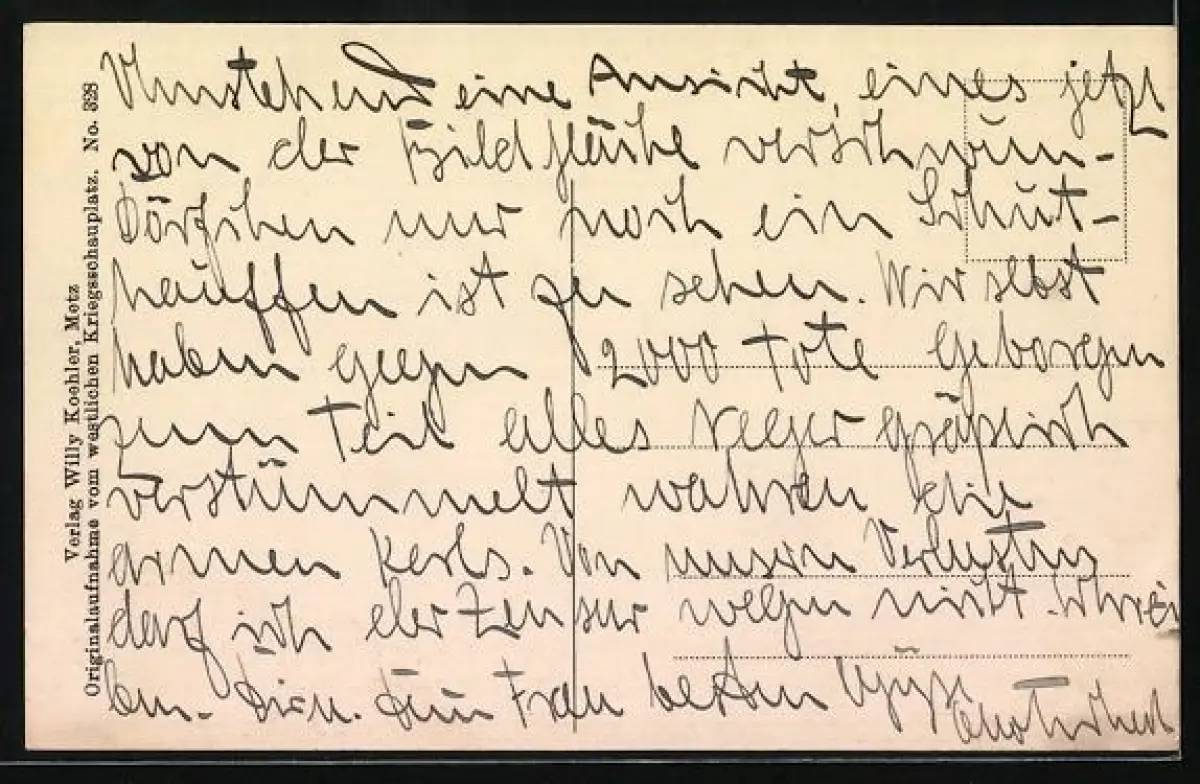 Verlag Willy Koehler, Metz
Originalaufnahme vom westlichen Kriegsschauplatz. No. 328
Umstehend eine Ansicht, eines jetzt
von der Bildfläche verschwun-
Dörfchen nur noch ein Schut-
hauffen ist zu sehen. Wir selbst
haben gegen 2000 Tote geborgen
zum Teil alles Neger gräßlich
verstümmelt wahren die
armen Kerls. Von unsern Verlusten
darf ich der Zensur wegen nicht schrei
ben. Dir u. Frau besten